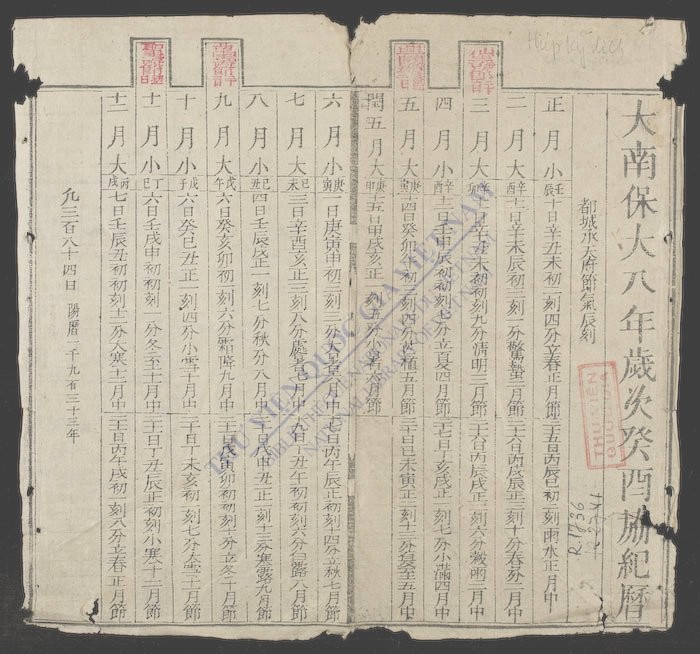 Hiệp kỷ lịch
大南保大八年歲次癸酉協紀曆
都城承天府節氣辰刻
正月小 壬辰 十日辛丑未初一刻四分立春正月節 二十五日丙辰巳初一刻雨水正月中
二月大 辛酉 十一日辛未辰初三刻一分驚蟄二月節 二十六日丙戌辰正二刻十分春分二月中
三月大 辛卯 十一日辛丑未初初刻七分清明三月節 二十六日丙辰戌正一刻六分穀雨三月中
四月小 辛酉 十二日壬申辰初初刻七分立夏四月節 二十七日丁亥戌正一刻七分小滿四月中
五月大 庚寅 十四日癸卯午初二刻四分芒種五月節 三十日己未寅正一刻十三分夏至五月中
閏五月大 庚申 十五日甲戌亥正一刻五分小暑六月節
六月小 庚寅 一日庚寅申初三刻大暑六月中 十七日丙午辰正初刻四分立秋七月節
七月大 己未 三日辛酉亥正三刻八分處暑七月中 十九日丁丑午初初刻六分白露八月節
八月小 己丑 四日壬辰戌正一刻七分秋分八月中 二十日戊申丑正一刻十三分寒露九月節
九月大 戊午 六日癸亥卯初一刻六分霜降九月中 二十一日戊寅卯初初刻十分立冬十月節
十月小 戊子 六日癸巳丑正一刻四分小雪十月中 二十日丁未亥初一刻七分大雪十一月節
十一月小 丁巳 六日壬戌申初初刻一分冬至十一月中 二十一日丁丑辰正初刻小寒十二月節
十二月大 丙戌 七日壬辰丑初初刻十二分大寒十二月中 二十一日丙午戌初一刻八分立春正月節
凡三百八十四日 陽曆一千九百三十三年
THƯ VIỆN QUỐC GIA VIỆT NAM
BIBLIOTHÈQUE NATIONALE DU VIETNAM
NATIONAL LIBRARY OF VIETNAM
THU VIEN
QUOC GIA
R.1836